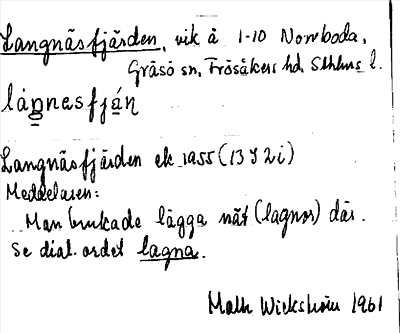 Langnäsfjärden, vik å 1-10 Norrboda,
Gräsö sn, Frösåkers hd, Sthlms l.
lángnesfján
Langnäsfjärden ek 1955 (13 I 2i)
Meddelaren:
Man brukade lägga nät (lagnor) där.
Se dial. ordet lagna.
Wickström 1961